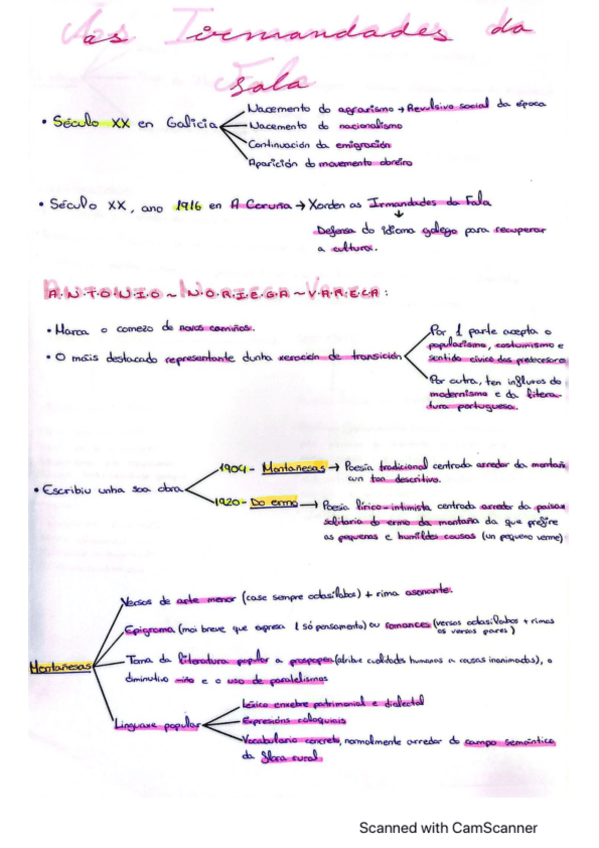 As Irmandades da
Fala
• Século XX en Galicia
Nacemento do agrarismo → Revulsivo social da época
Nacemento do nacionalismo
Continuación da emigración
Aparición do movemento obreiro
• Século XX, ano 1916 en A Coruña → Xorden as Irmandades da Fala
↓
Defensa do idioma galego para recuperar
a cultura.
A·N·T·O·N·I·O ~ N·O·R·I·E·G·A ~ V·A·R·E·L·A :
• Marca o comezo de novos camiños.
• O máis destacado representante dunha xeración de transición
Por 1 parte acepta o
popularismo, costumismo e
sentido cívico dos predecesores
Por outra, ten influxos do
modernismo e da litera-
tura portuguesa.
• Escribiu unha soa obra
1904 - Montañesas → Poesía tradicional centrada arredor da montañ
cun ton descritivo.
1920 - Do ermo → Poesía lírico-intimista centrada arredor da paisax
solitaria do ermo da montaña da que prefire
as pequenas e humildes cousas (un pequeno verme)
Montañesas
Versos de arte menor (case sempre octosílabos) + rima asonante.
Epigrama (moi breve que expresa 1 só pensamento) ou romances (versos octosílabos + rimas
os versos pares)
Toma da literatura popular a prosopopea (atribúe cualidades humanas a cousas inanimadas), o
diminutivo -iño e o uso de paralelismos
Linguaxe popular
Léxico enxebre patrimonial e dialectal
Expresións coloquiais
Vocabulario concreto, normalmente arredor do campo semántico
da flora rural.
Scanned with CamScanner